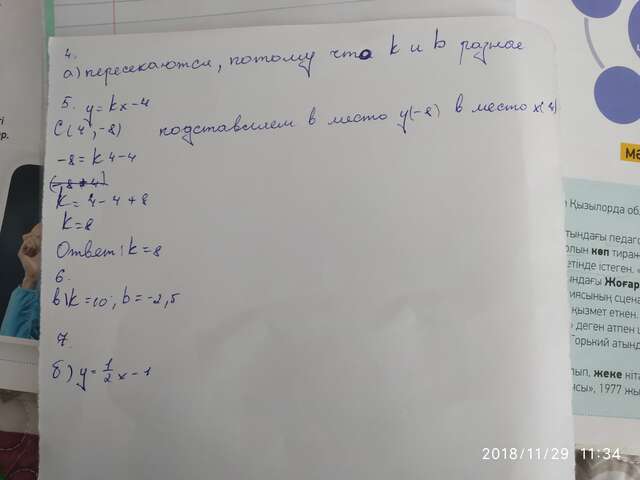 4.
а) пересекаются, потому что k и b разные
5. y=kx-4
C(4;-8) подставляем в место y(-8) в место x(4)
-8=k4-4
k=4-4+8
k=8
Ответ: k=8
6.
в) k=10; b=-2,5
7.
б) y=1/2x-1
Мә
н Қызылорда об
көп тираж
етінде істеген.
ындағы Жоғар
қызмет еткен.
» деген атпен
Горький атынд
ып, жеке кіта
нсы», 1977 жы
2018/11/29 11:34